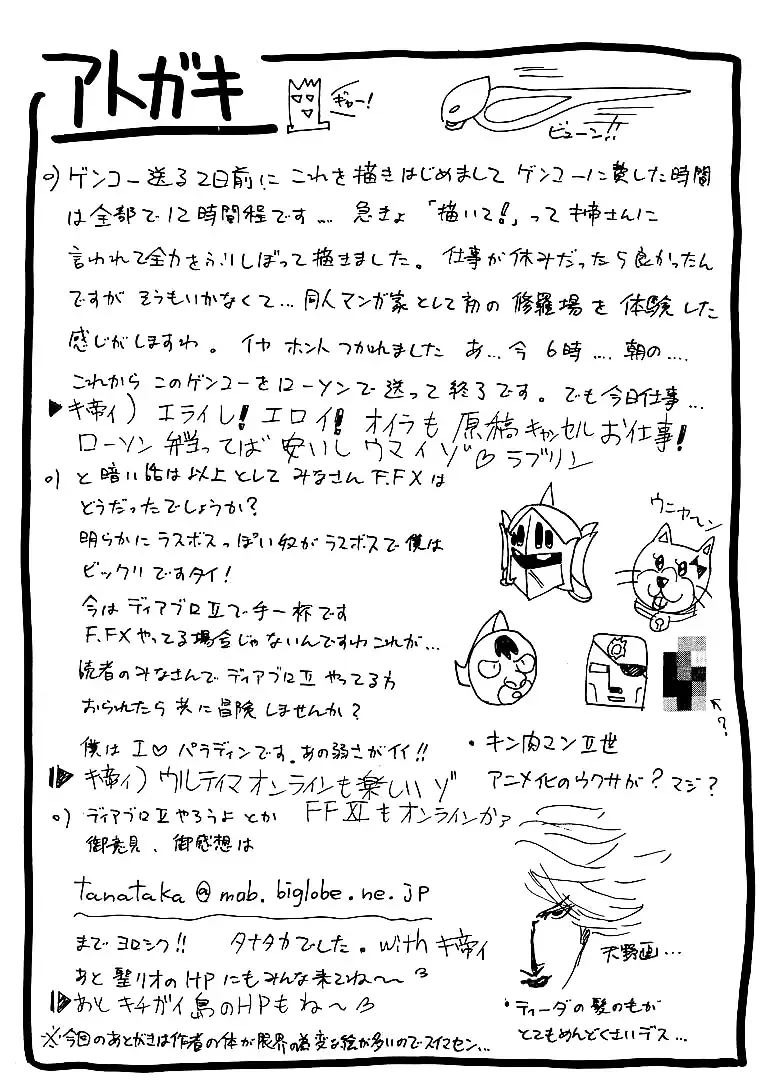 アトガキ
ギャー!
ビューン!!
o) ゲンコー送る2日前に これを描きはじめまして ゲンコーに費した時間
は全部で12時間程です… 急きょ 「描いて!」って キ帝さんに
言われて全力をふりしぼって描きました。 仕事が休みだったら良かったん
ですが そうもいかなくて… 同人マンガ家として初の 修羅場を 体験した
感じがしますわ。 イヤ ホント つかれました あ… 今 6時… 朝の…
これから このゲンコーをローソンで送って終了です。 でも今日仕事…
▶キ帝ィ) エライし! エロイ! オイラも 原稿キャンセルお仕事!
ローソン弁当ってば 安いし ウマイゾ♡ ラブリン
o) と暗い話は以上として みなさん F.FXは
どうだったでしょうか?
明らかに ラスボスっぽい奴が ラスボスで僕は
ビックリですタイ!
今は ディアブロⅡで手一杯です
F.FXやってる場合じゃないんですわこれが…
読者のみなさんで ディアブロⅡ やってる方
おられたら 共に冒険しませんか?
僕は I♡ パラディンです。あの弱さがイイ!!
ウニャ〜ン
?
・キン肉マンⅡ世
アニメ化のウワサが? マジ?
▶キ帝ィ) ウルティマオンラインも楽しいゾ
o) ディアブロⅡやろうよ とか FFⅪもオンラインか?
御意見、御感想は
tanataka@mob.biglobe.ne.jp
まで ヨロシク!! タナタカでした。with キ帝ィ
あと 聖リオのHPにもみんな来てね〜
▶あと キチガイ島のHPもね〜
天野画…
・ティーダの髪のもが
とてもめんどくさいデス…
※今回のあとがきは作者の体が限界の為変な絵が多いのでスイマセン…